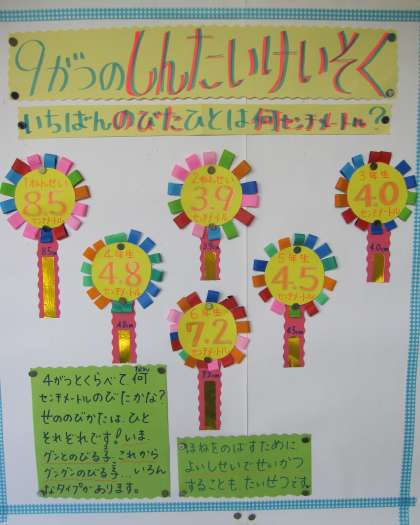 9がつのしんたいけいそく。
いちばんのびたひとは何センチメートル?
1ねんせい
8.5
センチメートル
8.5cm
2ねんせい
3.9
センチメートル
3.9cm
3年生
4.0
センチメートル
4.0cm
4年生
4.8
センチメートル
4.8cm
5年生
4.5
センチメートル
4.5cm
6年生
7.2
センチメートル
7.2cm
4がつとくらべて何
なん
センチメートルのびたかな?
せののびかたは、ひと
それぞれです!いま、
グンとのびる子、これから
グングンのびる子、いろん
なタイプがあります。
ほねをのばすために
よいしせいでせいかつ
することもたいせつです。